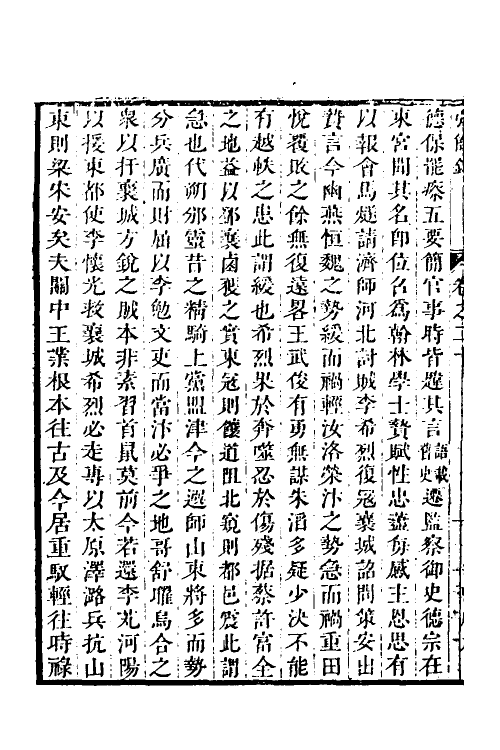 卷之二十
德保罷瘵五要簡官事時皆韙其言語載舊史遷監察御史德宗在
東宮聞其名卽位名爲翰林學士贄賦性忠藎毎感主恩思有
以報會馬燧請濟師河北討賊李希烈復寇襄城詔問策安出
贄言今幽燕恒魏之勢緩而禍輕汝洛滎汴之勢急而禍重田
悅覆敗之餘無復遠畧王武俊有勇無謀朱滔多疑少決不能
有越軼之患此謂緩也希烈果於奔噬忍於傷殘据蔡許富全
之地益以鄧襄鹵獲之實東寇則饟道阻北窺則都邑震此謂
急也代朔邠靈昔之精騎上黨盟津今之選師山東將多而勢
分兵廣而財屈以李勉文吏而當汴必爭之地哥舒曜烏合之
衆以扞襄城方銳之賊本非素習首鼠莫前今若還李芃河陽
以援東都使李懷光救襄城希烈必走專以太原澤潞兵抗山
東則梁宋安矣夫關中王業根本往古及今居重馭輕往時祿